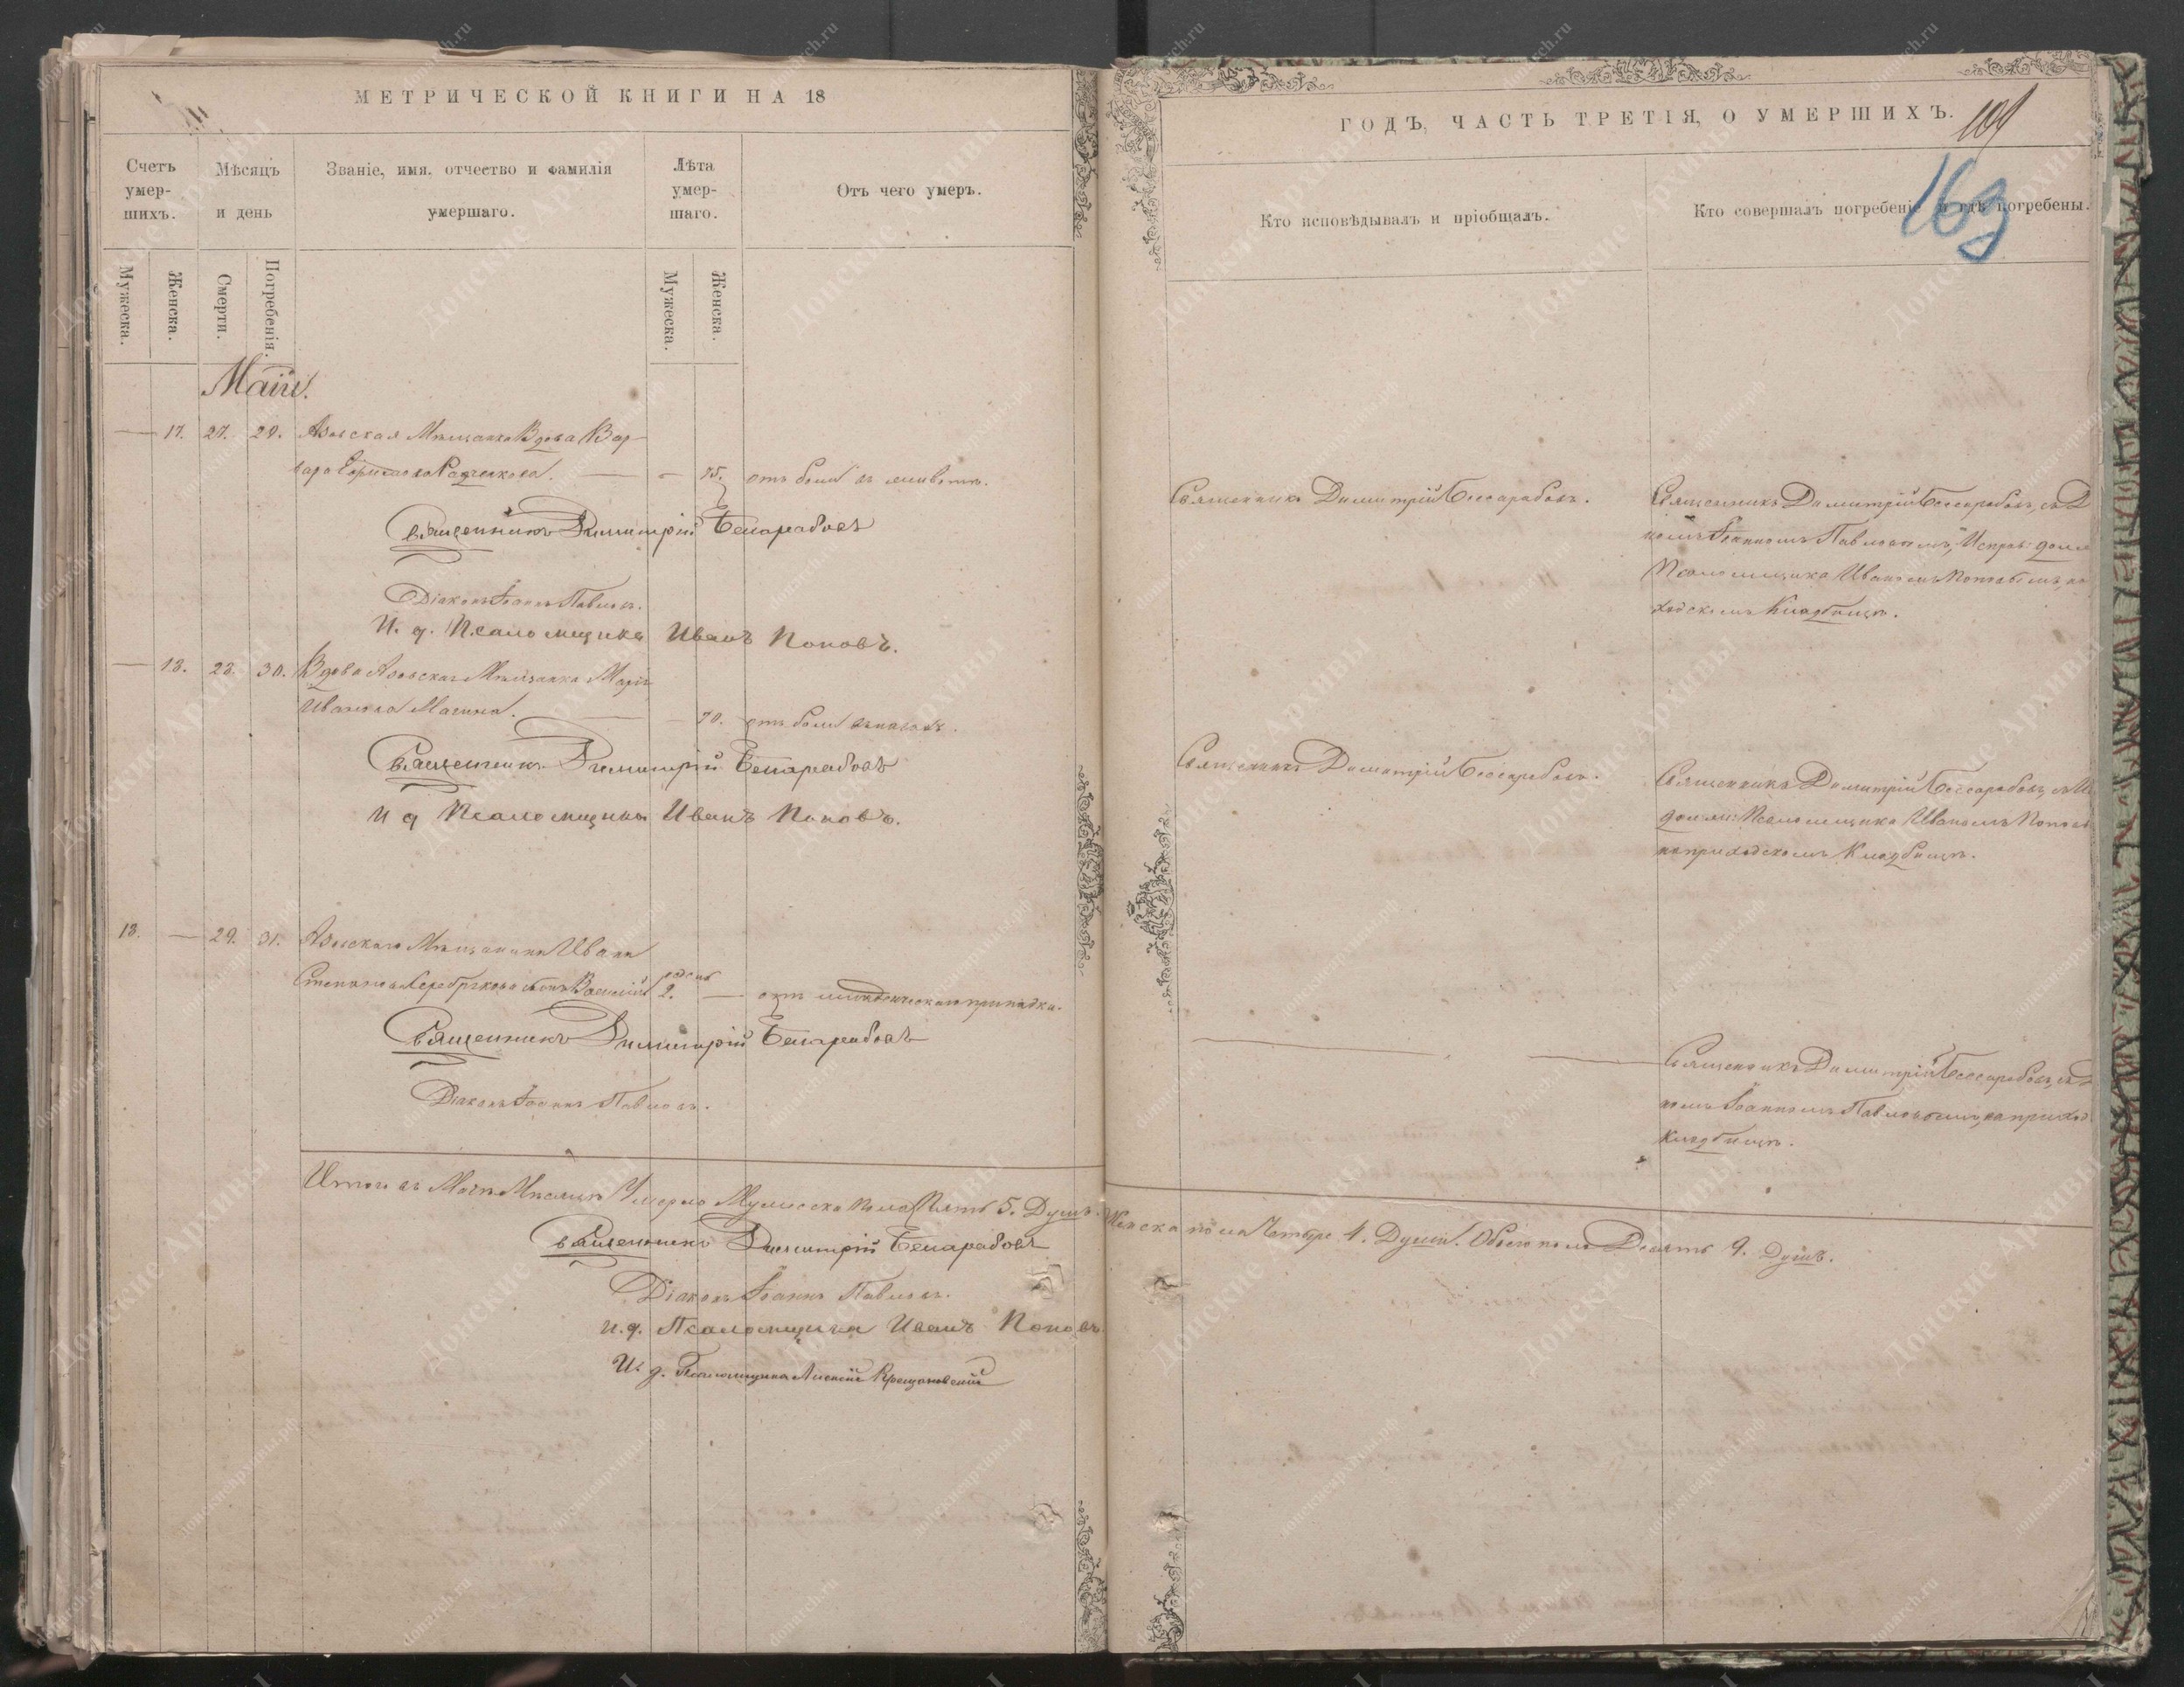 МЕТРИЧЕСКОЙ КНИГИ НА 18
Счетъ умер-шихъ.
Мѣсяцъ и день
Званіе, имя, отчество и фамилія умершаго.
Лѣта умер-шаго.
Отъ чего умеръ.
Мужеска.
Женска.
Смерти.
Погребенія.
Мужеска.
Женска.
Маія.
17. 27. 29. Азовская Мѣщанка Вдова Вар-
вара
75. отъ боли въ животѣ.
Священникъ Димитрій Бессарабовъ
Діаконъ Іоаннъ Павловъ.
И. д. Псаломщика Иванъ Поповъ.
18. 28. 30. Вдова Азовская Мѣщанка Марія
Иванова
70. отъ боли
Священникъ Димитрій Бессарабовъ
И д Псаломщика Иванъ Поповъ.
13. 29. 31. Азовскаго Мѣщанина Ивана
Степанова Серебрякова сынъ Василій
2. отъ младенческаго припадка.
Священникъ Димитрій Бессарабовъ
Діаконъ Іоаннъ Павловъ.
Итого въ Маіѣ Мѣсяцѣ Умерло Мужеска пола Пять 5. Душъ.
Священникъ Димитрій Бессарабовъ
Діаконъ Іоаннъ Павловъ.
И. д. Псаломщика Иванъ Поповъ
И. д. Псаломщика Алексій
ГОДЪ, ЧАСТЬ ТРЕТІЯ, О УМЕРШИХЪ.
109
163
Кто исповѣдывалъ и пріобщалъ.
Кто совершалъ погребеніе и гдѣ погребены.
Священникъ Димитрій Бессарабовъ.
Священникъ Димитрій Бессарабовъ, съ Д
номъ Іоанномъ Павловымъ, Исправ: долж
Псаломщика Иваномъ Поповымъ, на
ходскомъ Кладбищѣ.
Священникъ Димитрій Бессарабовъ.
Священникъ Димитрій Бессарабовъ, съ И
долж: Псаломщика Иваномъ Попов
на приходскомъ Кладбищѣ.
Священникъ Димитрій Бессарабовъ, съ Д
номъ Іоанномъ Павловымъ, на приход
Кладбищѣ.
Женска пола Четыре 4. Души. Обоего пола Девять 9. Душъ.